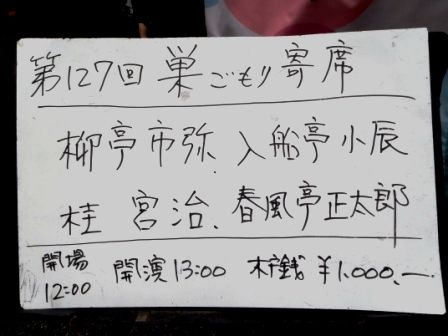 第127回 巣ごもり寄席
柳亭市弥. 入船亭小辰
桂 宮治、春風亭正太郎
開場 12:00 開演13:00 木戸銭 ¥1.000.—